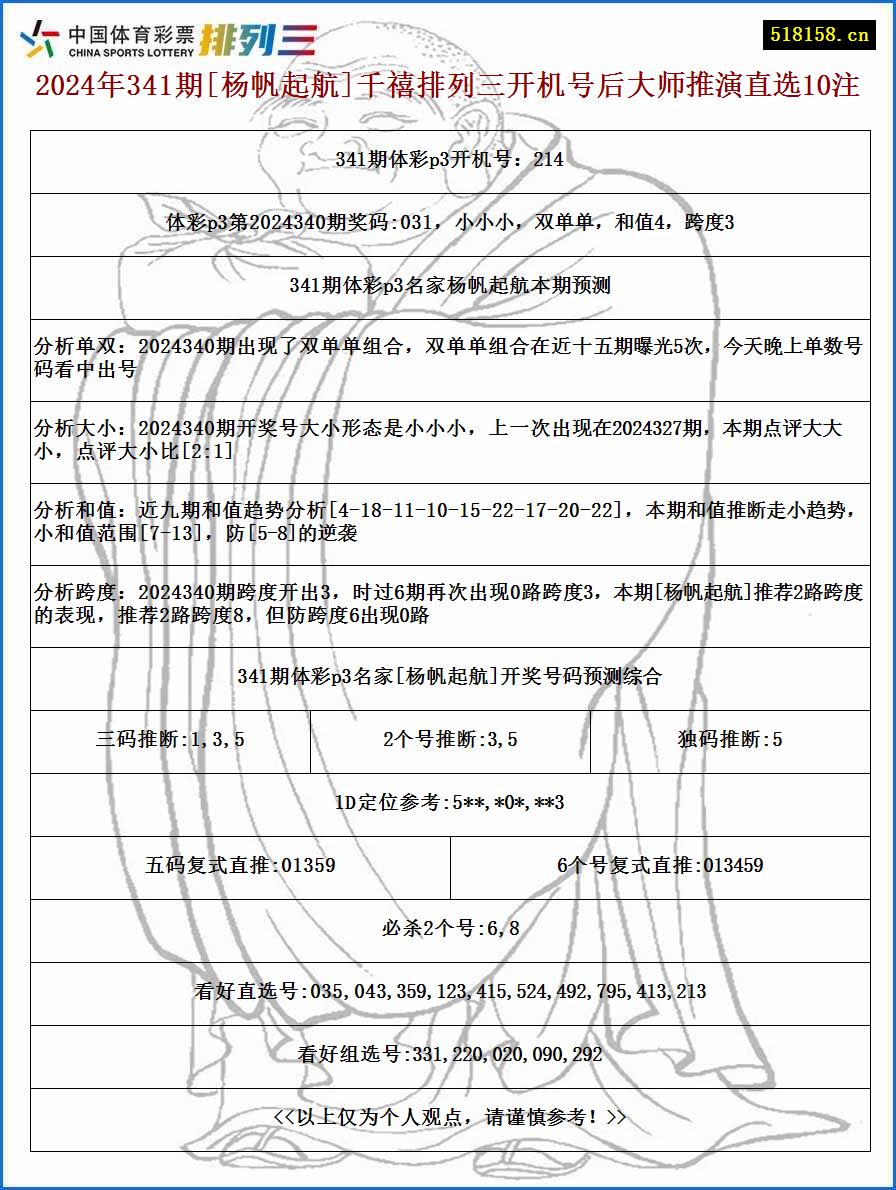 中国体育彩票
CHINA SPORTS LOTTERY
排列三
518158.cn
2024年341期[杨帆起航]千禧排列三开机号后大师推演直选10注
341期体彩p3开机号：214
体彩p3第2024340期奖码:031，小小小，双单单，和值4，跨度3
341期体彩p3名家杨帆起航本期预测
分析单双：2024340期出现了双单单组合，双单单组合在近十五期曝光5次，今天晚上单数号
码看中出号
分析大小：2024340期开奖号大小形态是小小小，上一次出现在2024327期，本期点评大大
小，点评大小比[2:1]
分析和值：近九期和值趋势分析[4-18-11-10-15-22-17-20-22]，本期和值推断走小趋势，
小和值范围[7-13]，防[5-8]的逆袭
分析跨度：2024340期跨度开出3，时过6期再次出现0路跨度3，本期[杨帆起航]推荐2路跨度
的表现，推荐2路跨度8，但防跨度6出现0路
341期体彩p3名家[杨帆起航]开奖号码预测综合
三码推断:1,3,5
2个号推断:3,5
独码推断:5
1D定位参考:5**,*0*,**3
五码复式直推:01359
6个号复式直推:013459
必杀2个号:6,8
看好直选号:035,043,359,123,415,524,492,795,413,213
看好组选号:331,220,020,090,292
<<以上仅为个人观点，请谨慎参考！>>